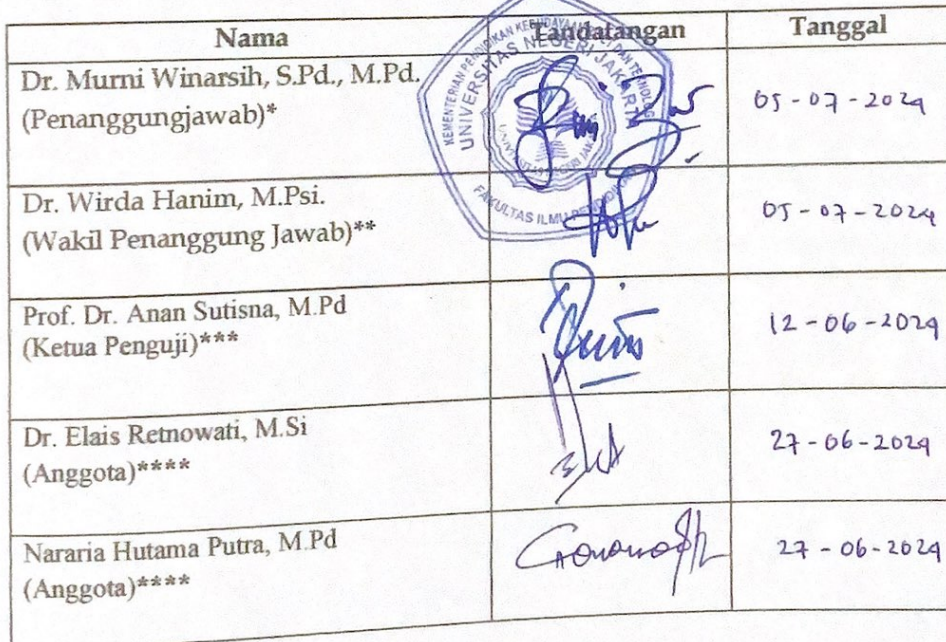 Nama Tandatangan Tanggal
Dr. Murni Winarsih, S.Pd., M.Pd.
(Penanggungjawab)*
05-07-2024
Dr. Wirda Hanim, M.Psi.
(Wakil Penanggung Jawab)**
05-07-2024
Prof. Dr. Anan Sutisna, M.Pd
(Ketua Penguji)***
12-06-2024
Dr. Elais Retnowati, M.Si
(Anggota)****
27-06-2024
Nararia Hutama Putra, M.Pd
(Anggota)****
27-06-2024
UNIVERSITAS NEGERI JAKARTA
FAKULTAS ILMU